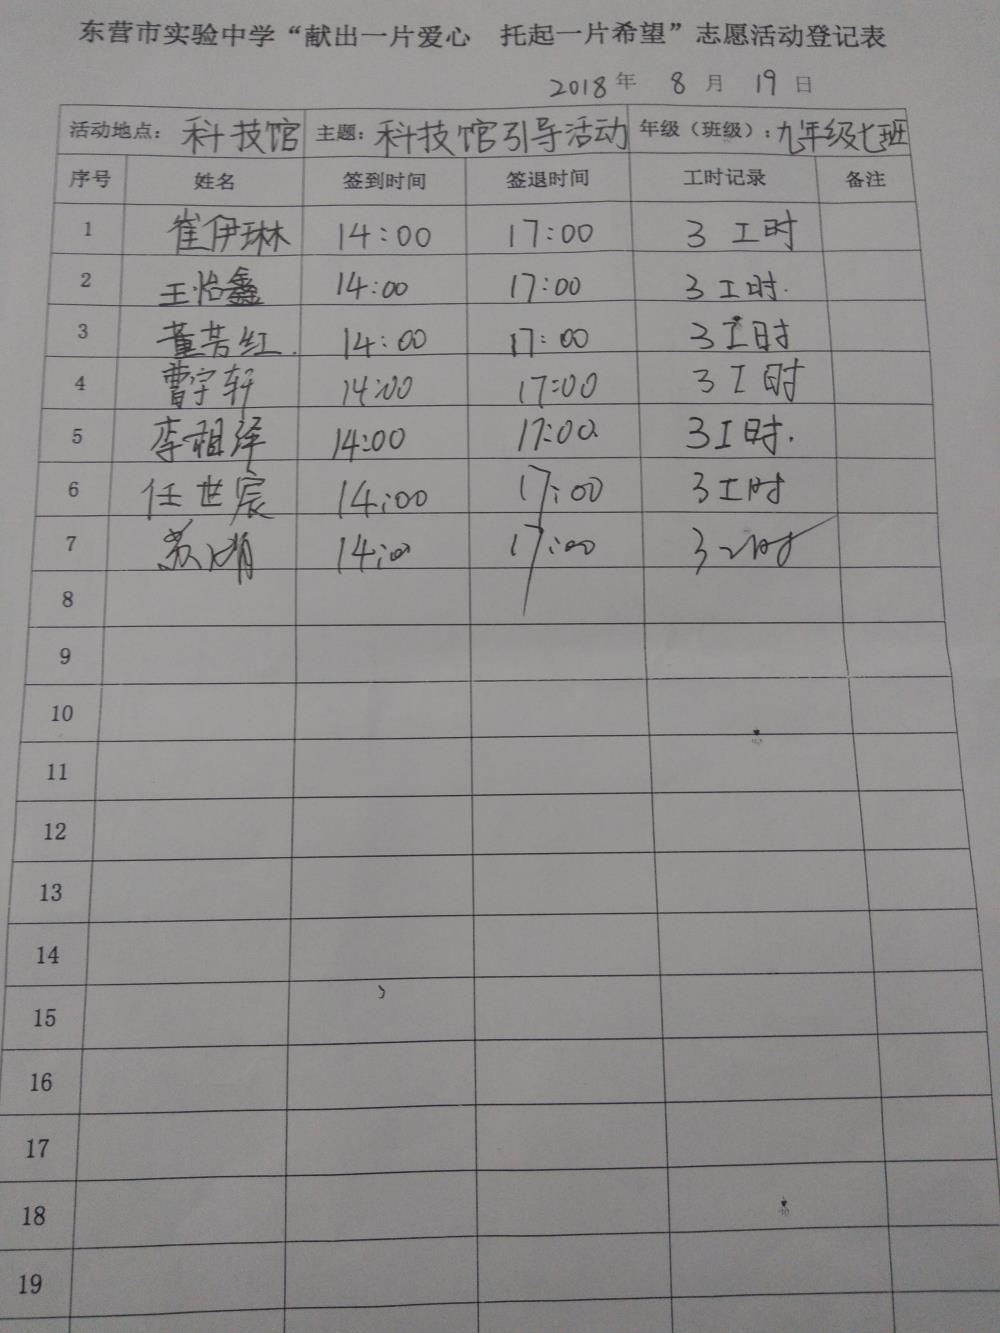 东营市实验中学“献出一片爱心 托起一片希望”志愿活动登记表
2018年 8月 19日
活动地点：科技馆 主题：科技馆引导活动 年级（班级）：九年级七班
序号 姓名 签到时间 签退时间 工时记录 备注
1 崔伊琳 14:00 17:00 3 工时
2 王怡鑫 14:00 17:00 3工时.
3 董芳红. 14:00 17:00 3工时
4 曹宇轩 14:00 17:00 3工时
5 李祖泽 14:00 17:00 3工时.
6 任世宸 14:00 17:00 3工时
7 苏 14:00 17:00 3工时
8
9
10
11
12
13
14
15
16
17
18
19